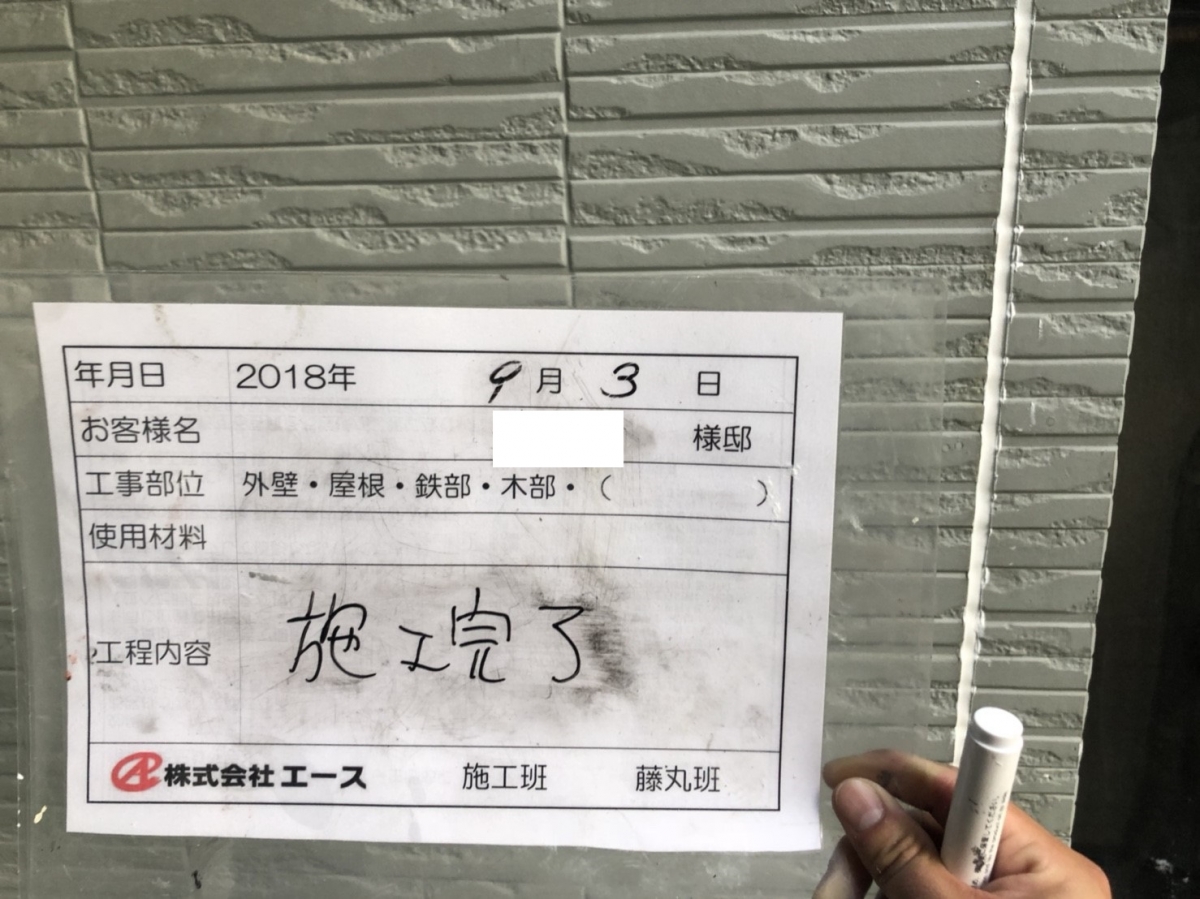 年月日 2018年 9月 3日
お客様名 様邸
工事部位 外壁・屋根・鉄部・木部・（ ）
使用材料
工程内容 施工完了
株式会社エース 施工班 藤丸班